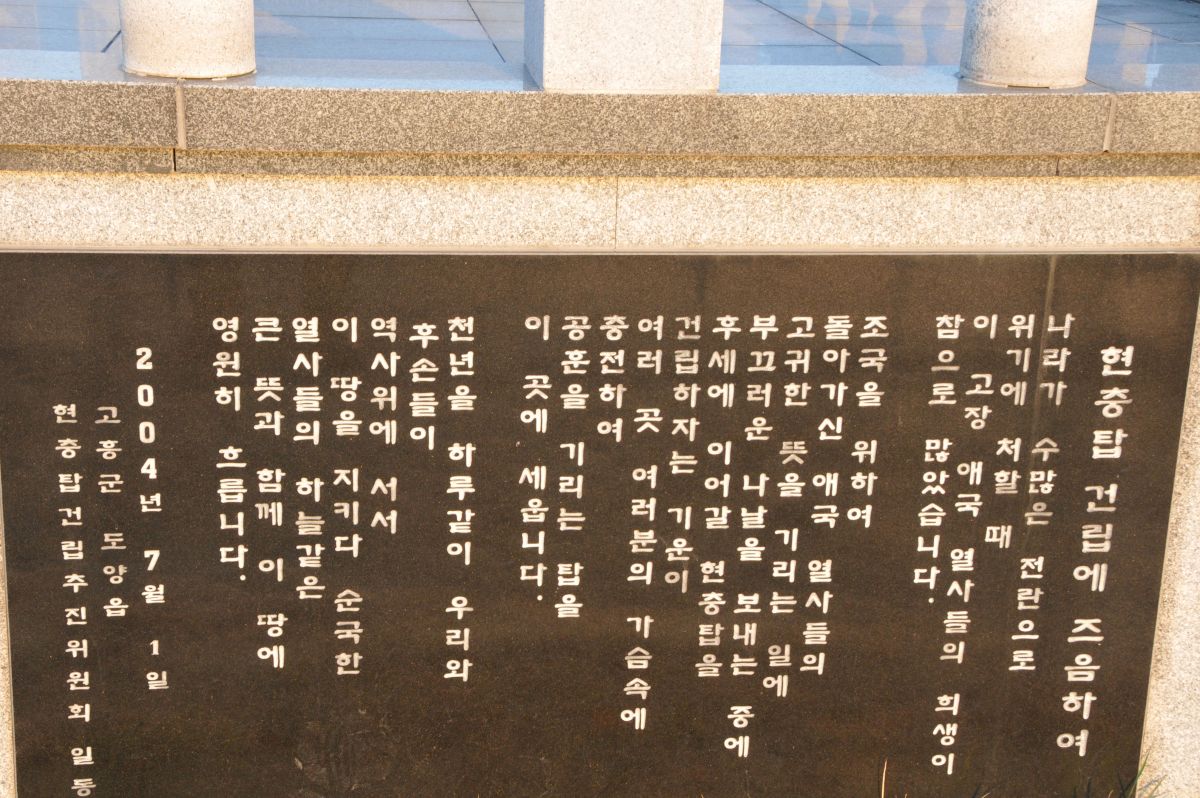 현충탑 건립에 즈음하여
나라가 수많은 전란으로
위기에 처할 때
이 고장 애국 열사들의 희생이
참으로 많았습니다.
조국을 위하여
돌아가신 애국 열사들의
고귀한 뜻을 기리는 일에
부끄러운 나날을 보내는 중에
후세에 이어갈 현충탑을
건립하자는 기운이
여러 곳 여러분의 가슴속에
충전하여
공훈을 기리는 탑을
이 곳에 세웁니다.
천년을 하루같이 우리와
후손들이
역사위에 서서
이 땅을 지키다 순국한
열사들의 하늘같은
큰 뜻과 함께 이 땅에
영원히 흐릅니다.
2004년 7월 1일
고흥군 도양읍
현충탑건립추진위원회 일동